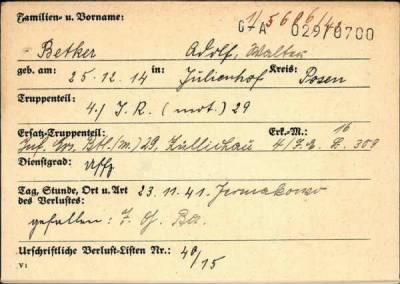 Familien- u. Vorname:
1/5686/41
G-A 029/0700
Betker Adolf, Walter
geb. am: 25.12.14 in: Julienhof Kreis: Posen
Truppenteil:
4./ J.R. (mot.) 29
Ersatz-Truppenteil: Erk.-M.: 16
Inf. Ers. Btl. (m.) 29, Züllichau 4/J.E. R. 309
Dienstgrad: Uffz
Tag, Stunde, Ort u. Art 23.11.41.
des Verlustes:
gefallen:
Urschriftliche Verlust-Listen Nr.: 40/15
V 1